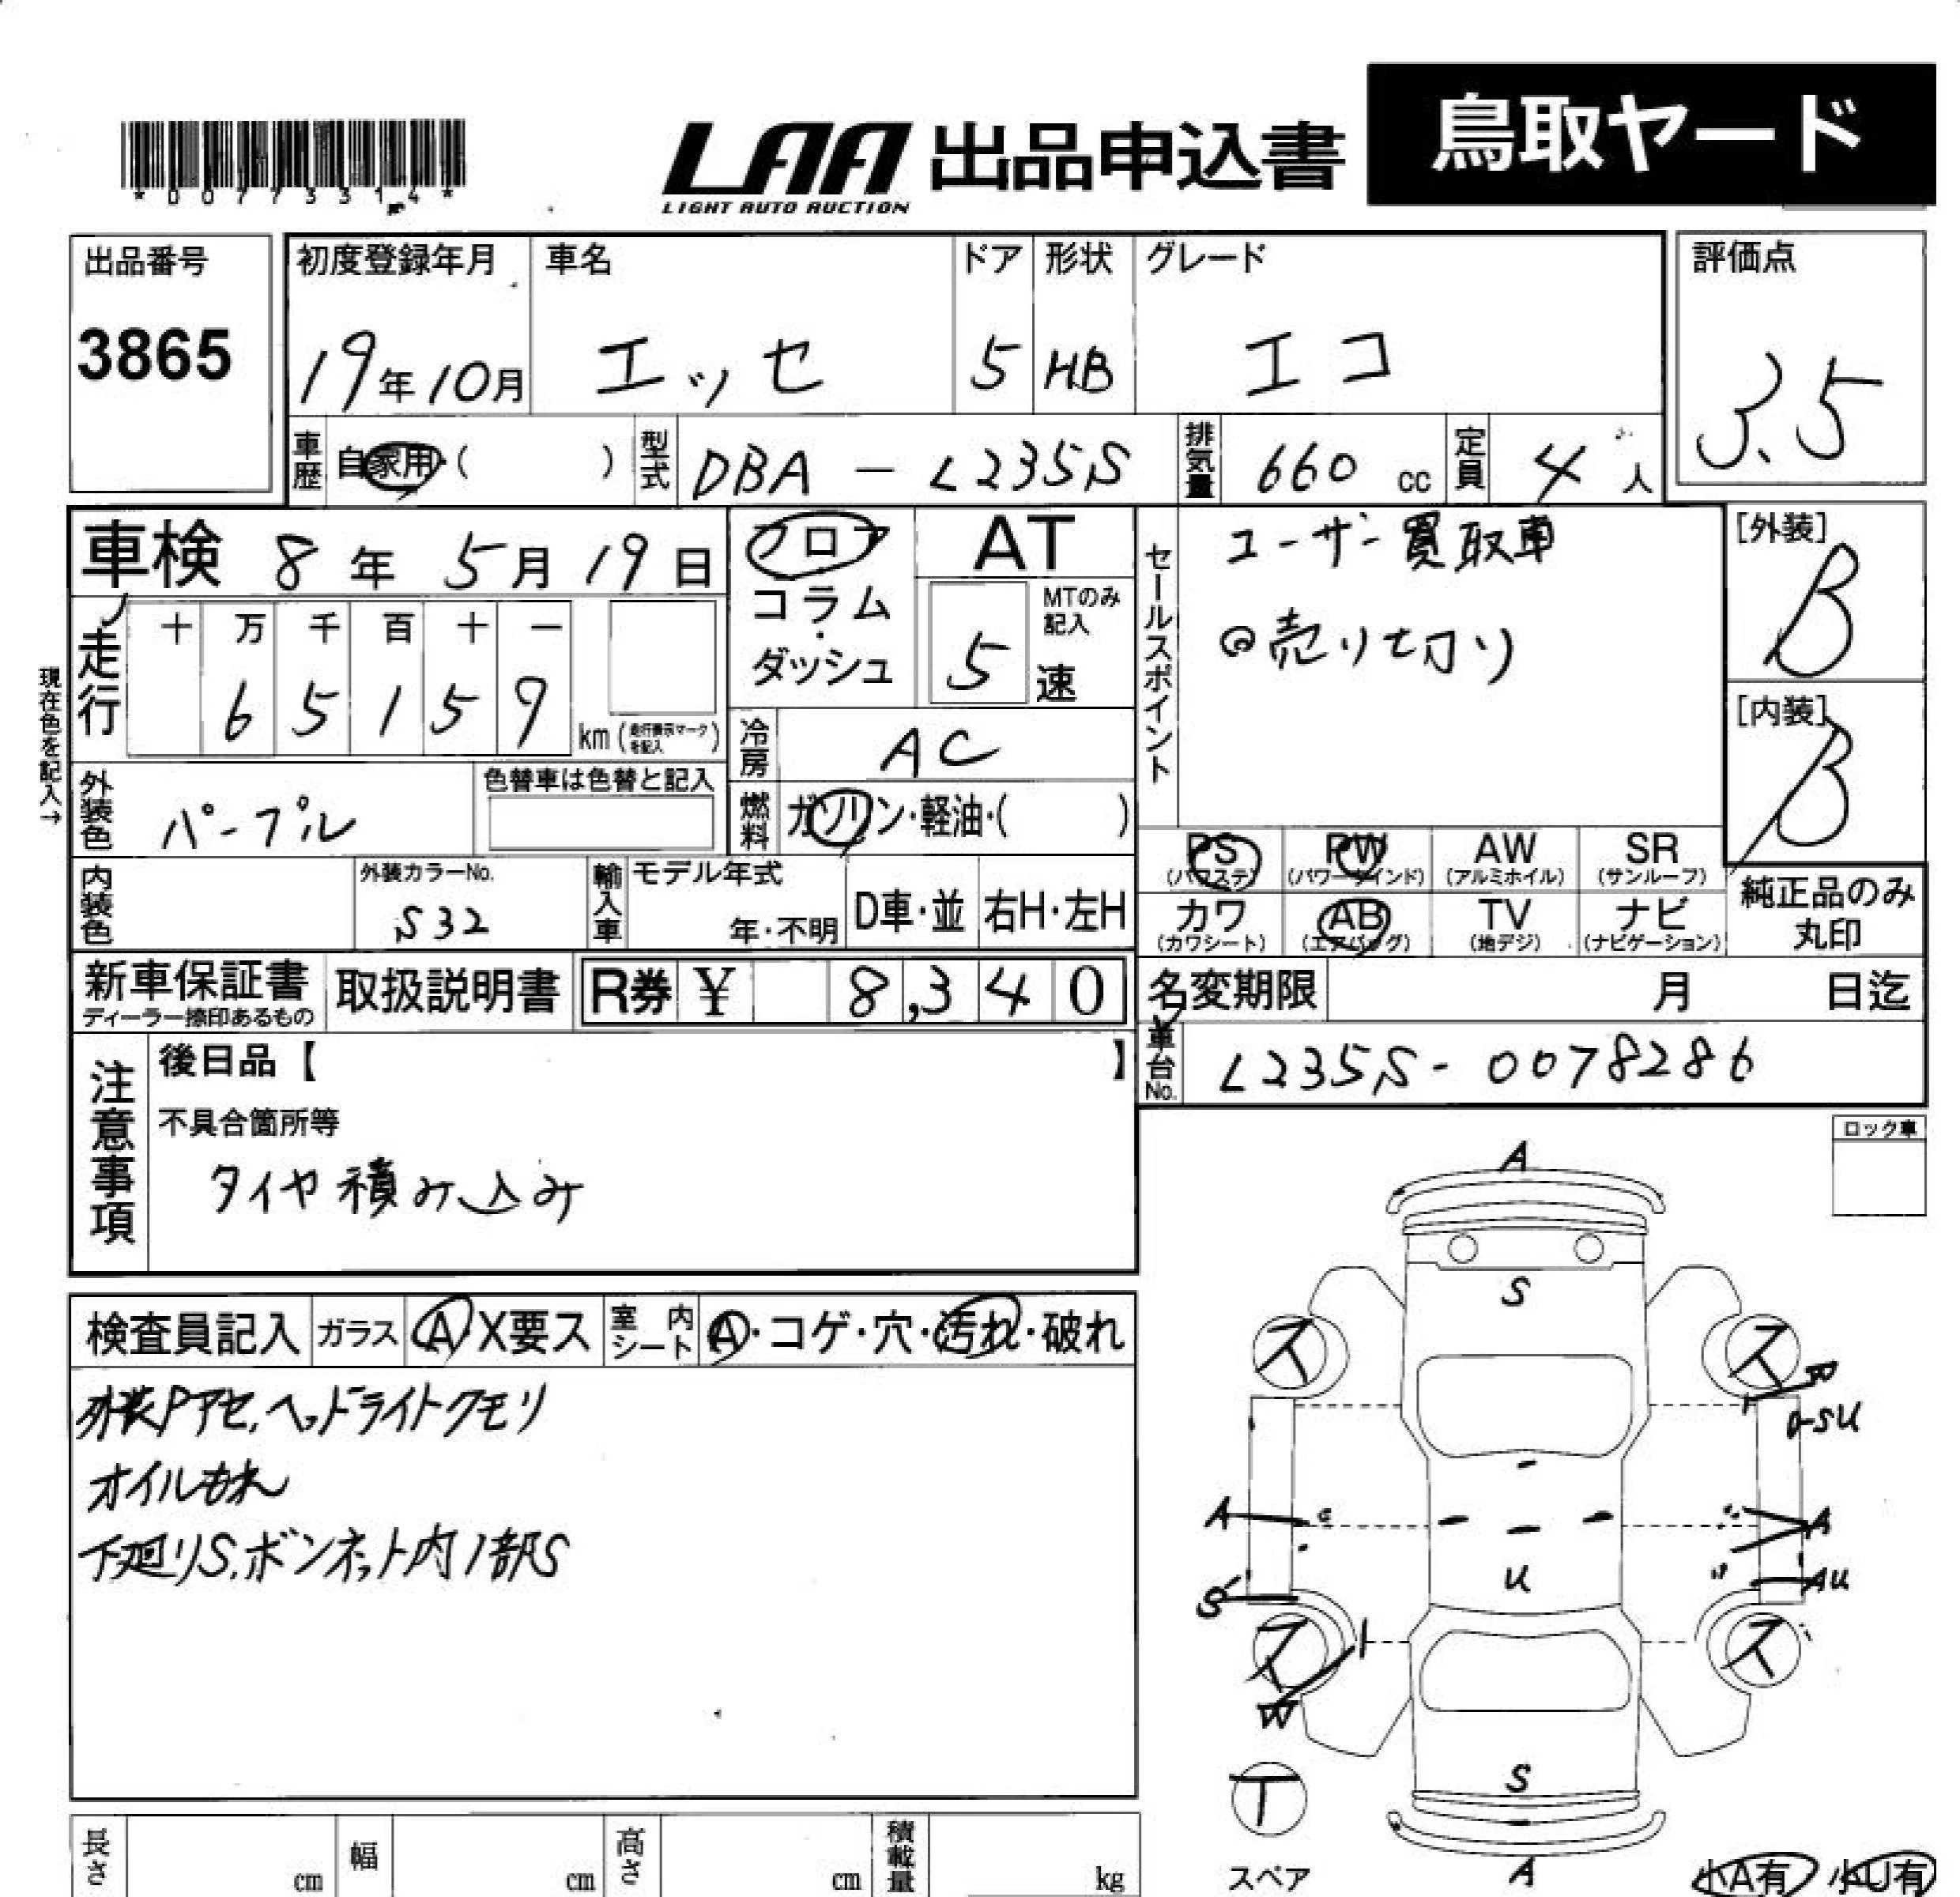 *00773314*
LAA 出品申込書 鳥取ヤード
LIGHT AUTO AUCTION
出品番号
3865
初度登録年月
19年10月
車名
エッセ
ドア
5
形状
HB
グレード
エコ
評価点
3.5
車歴 自家用・( )
型式 DBA-L235S
排気量 660 cc
定員 4 人
車検 8年 5月 19日
走行
十 万 千 百 十 一
6 5 1 5 9
km (走行表示マークを記入)
現在色を記入→
フロア
コラム
・
ダッシュ
AT
MTのみ記入
5 速
冷房 AC
燃料 ガソリン・軽油・( )
セールスポイント
ユーザー買取車
◎売り切り
[外装]
B
[内装]
B
外装色 パープル
色替車は色替と記入
内装色
外装カラーNo.
S32
輸入車
モデル年式
年・不明
D車・並
右H・左H
PS
(パワステ)
PW
(パワーウインド)
AW
(アルミホイル)
SR
(サンルーフ)
カワ
(カワシート)
AB
(エアバッグ)
TV
(地デジ)
ナビ
(ナビゲーション)
純正品のみ
丸印
新車保証書
ディーラー捺印あるもの
取扱説明書
R券 ¥ 8,340
名変期限 月 日迄
車台No. L235S-0078286
注意事項
後日品【 】
不具合箇所等
タイヤ積み込み
ロック車
検査員記入
ガラス A・X要ス
室内シート A・コゲ・穴・汚れ・破れ
外装Pアセ,ヘッドライトクモリ
オイルもれ
下廻りS,ボンネット内1部S
A
S
ス
ス
W
A
A
S
U
AU
ス
ス
W
S
T
スペア
A
小A有
小U有
長さ cm
幅 cm
高さ cm
積載量 kg